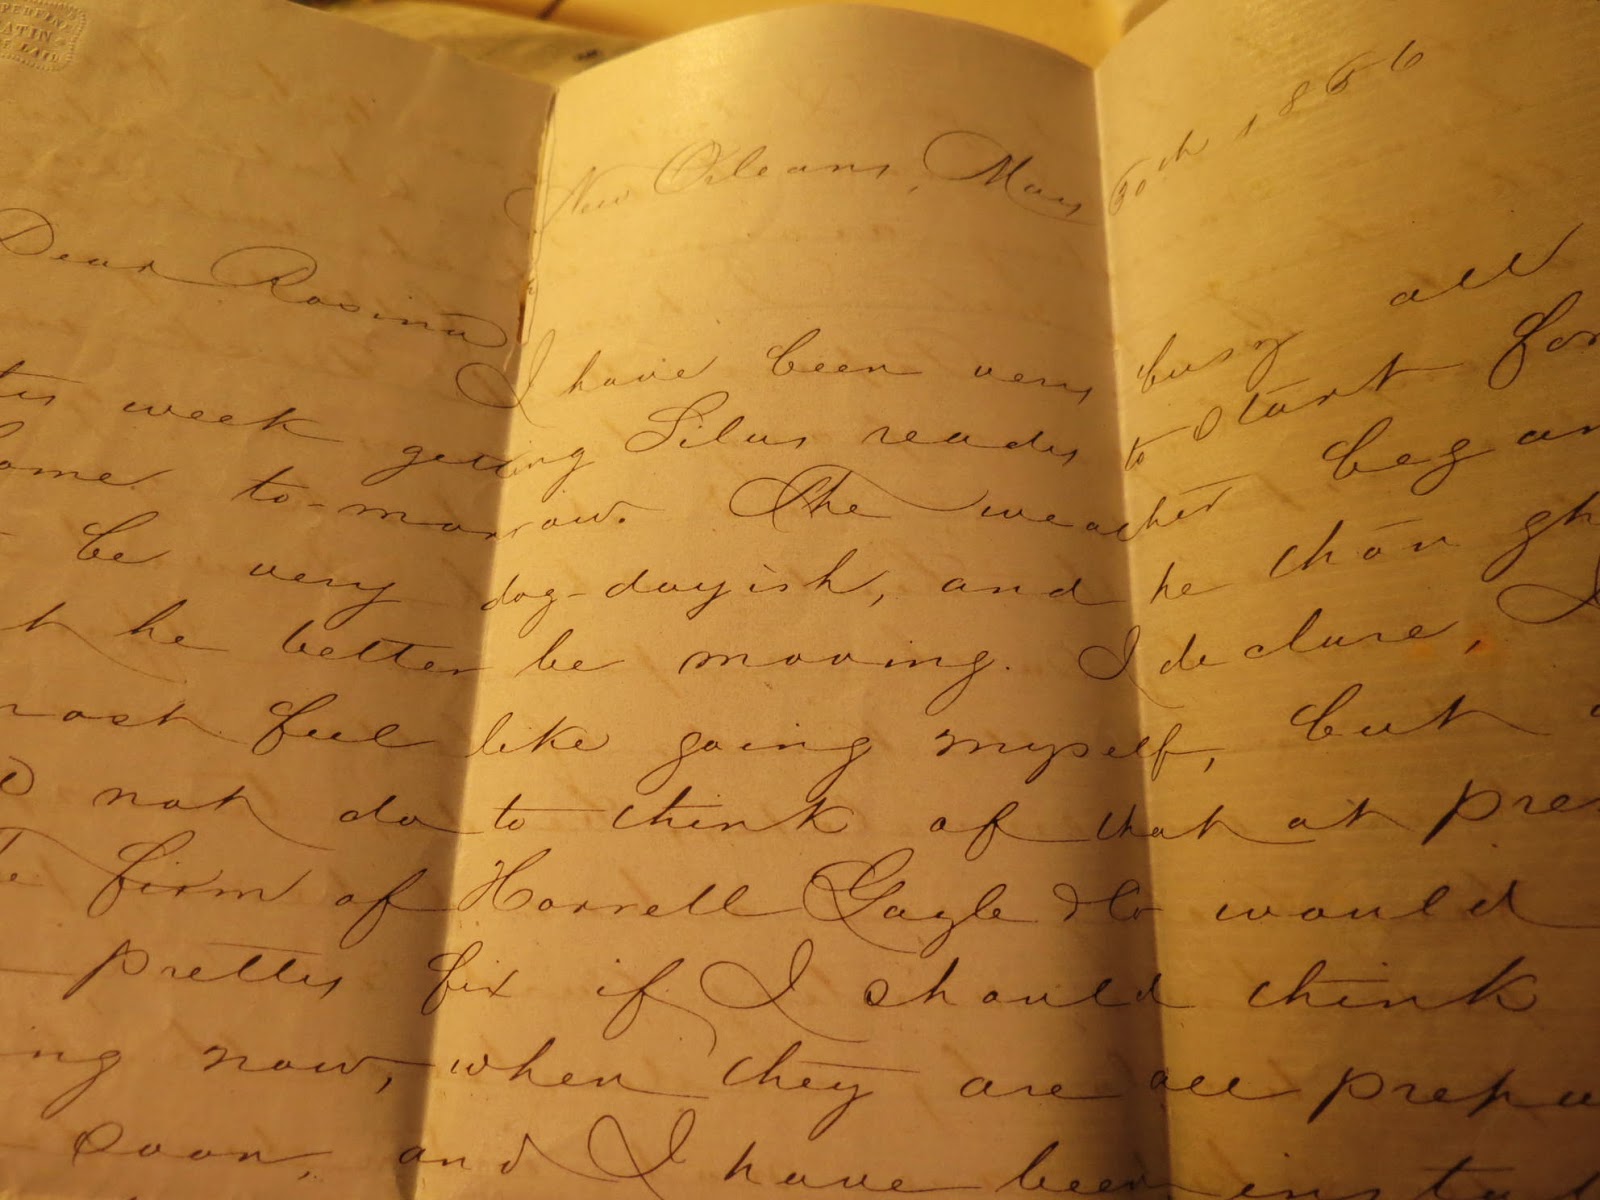 SUPERFINE
SATIN
LAID
New Orleans, May 30th 1856
Dear Rosina
I have been very busy all
week getting Silas ready to start for
to-morrow. The weather began
be very dog-dayish, and he though
he better be moving. I declare, I
most feel like going myself, but
not do to think of that at pres
firm of Horrell Gayle & Co would
pretty fix if I should think
ing now, when they are all prepa
soon, and I have been